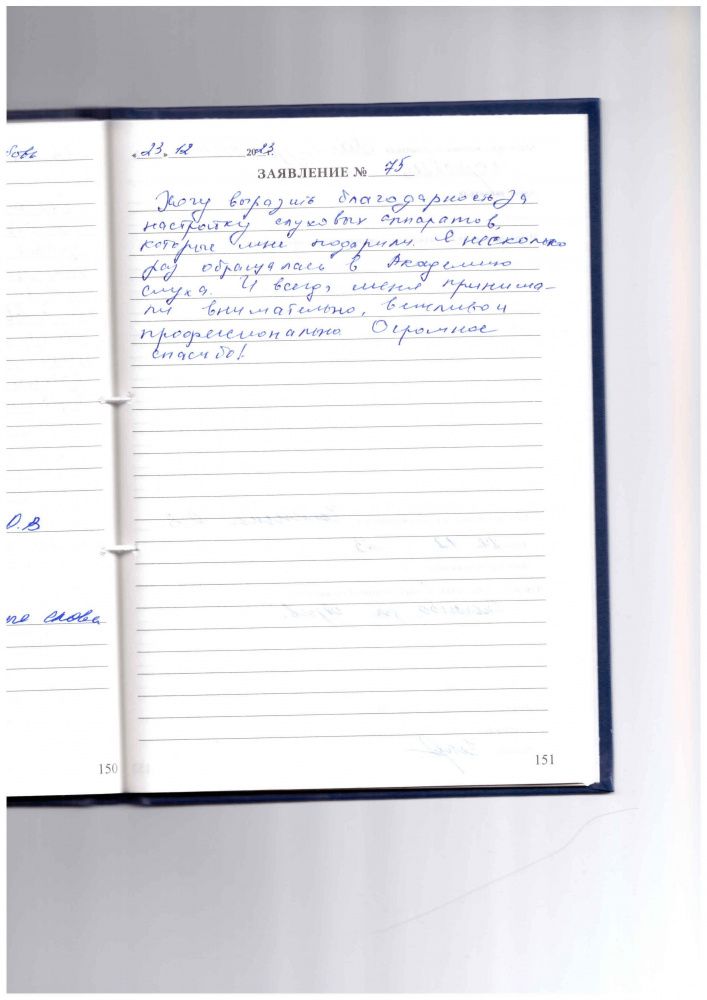 бовь
О.В
слова
150
«23» 12 2023г.
ЗАЯВЛЕНИЕ № 75
Хочу выразить благодарность за
настройку слуховых аппаратов,
которые мне подарили. Я несколько
раз обращалась в Академию
слуха. И всегда меня принима-
ли внимательно, вежливо и
профессионально. Огромное
спасибо!
151